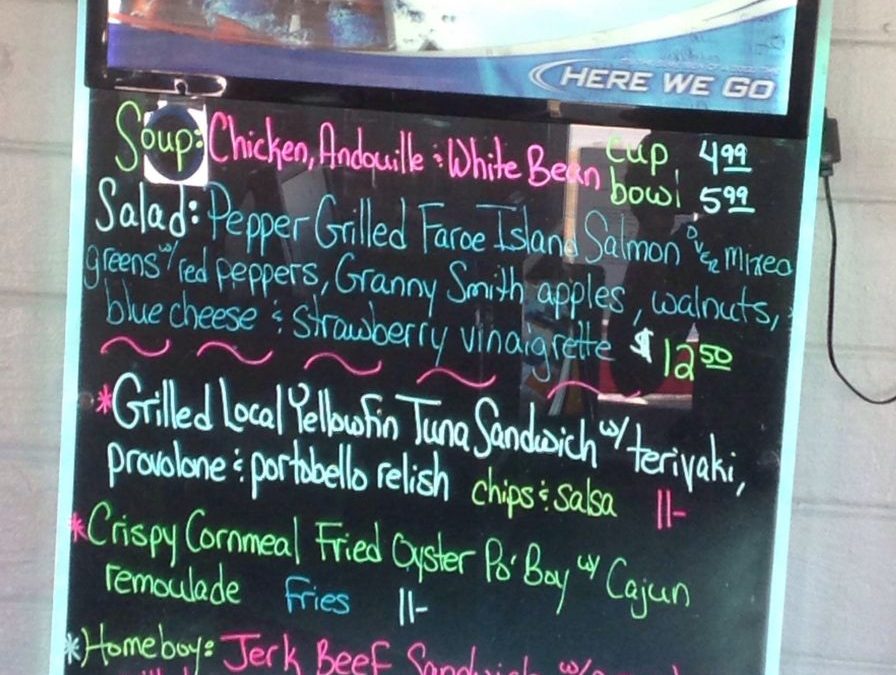 HERE WE GO
Soup: Chicken, Andouille & White Bean cup 4.99
bowl 5.99
Salad: Pepper Grilled Faroe Island Salmon over mixed
greens w/ red peppers, Granny Smith apples, walnuts,
blue cheese & strawberry vinaigrette $12.50
*Grilled Local Yellowfin Tuna Sandwich w/ teriyaki,
provolone & portobello relish chips & salsa 11-
*Crispy Cornmeal Fried Oyster Po' Boy w/ Cajun
remoulade Fries 11-
*Homeboy: Jerk Beef Sandwich w/